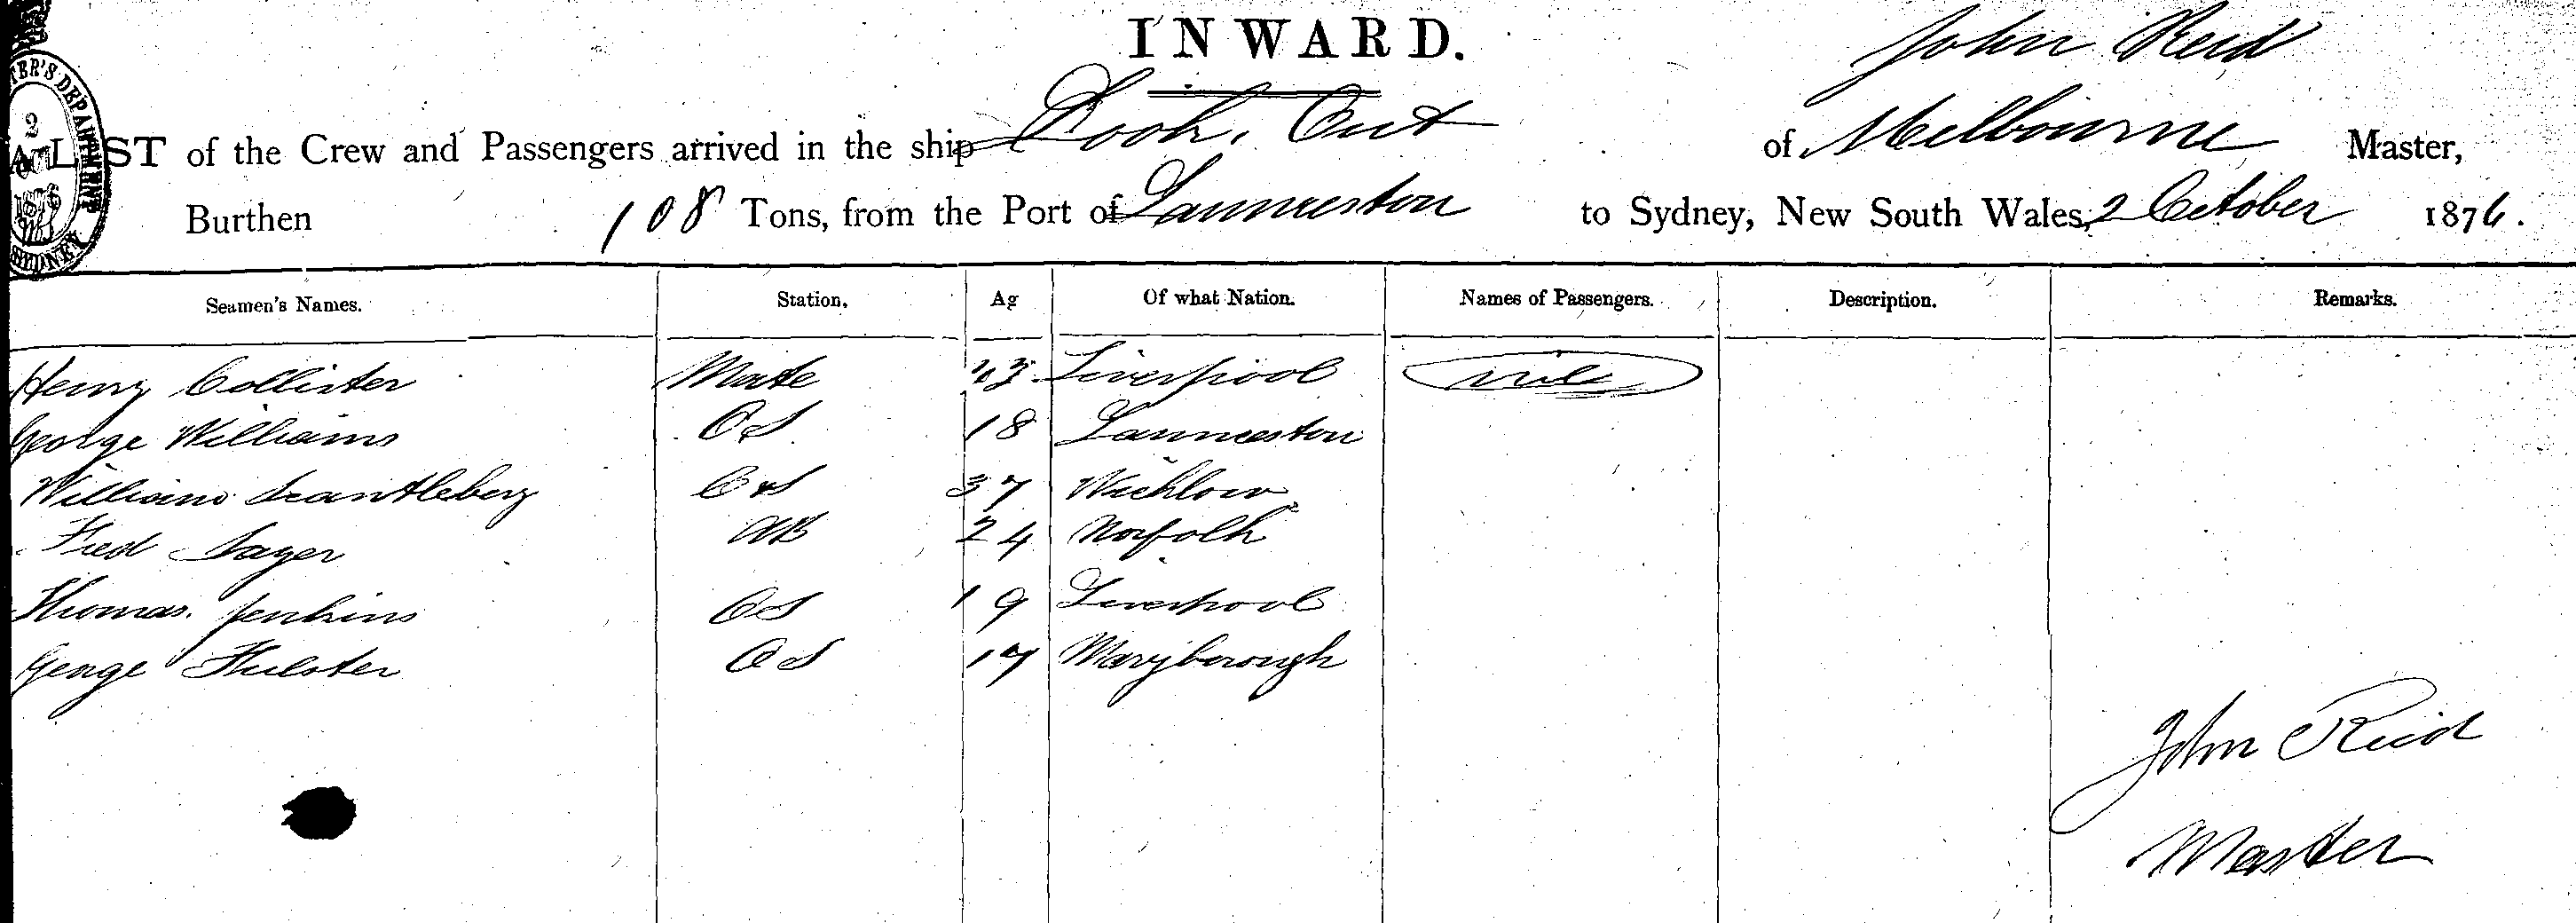 INWARD.
John Reid
A LIST of the Crew and Passengers arrived in the ship Look Out of Melbourne Master,
Burthen 108 Tons, from the Port of Launceston to Sydney, New South Wales, 2 October 1876.
Seamen's Names. Station. Ag Of what Nation. Names of Passengers. Description. Remarks.
Henry Collister Mate 43 Liverpool nil
George Williams OS 18 Launceston
William Scantlebery 37 Wicklow
Fred Sayer AB 24 Norfolk
Thomas Jenkins OS 19 Liverpool
George Hulster OS 17 Maryborough
John Reid
Master